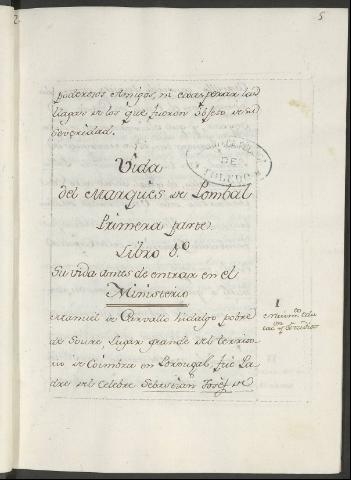 5
poderosos Amigos, ni exasperar las
llagas de los que fueron objeto de su
severidad.
Vida
del Marqués de Pombal
Primera parte.
Libro 1.º
Su vida antes de entrar en el
Ministerio
Manuel de Carvallo Hidalgo pobre
de Soure, Lugar grande del territo-
rio de Coimbra en Portugal, fue Pa-
dre del celebre Sebastian Josef de
1
Nacim.to edu
cac.on y Estudios
DE
TOLEDO